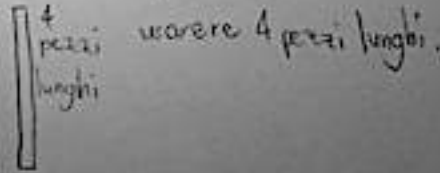 4
pezzi
lunghi
usare 4 pezzi lunghi.